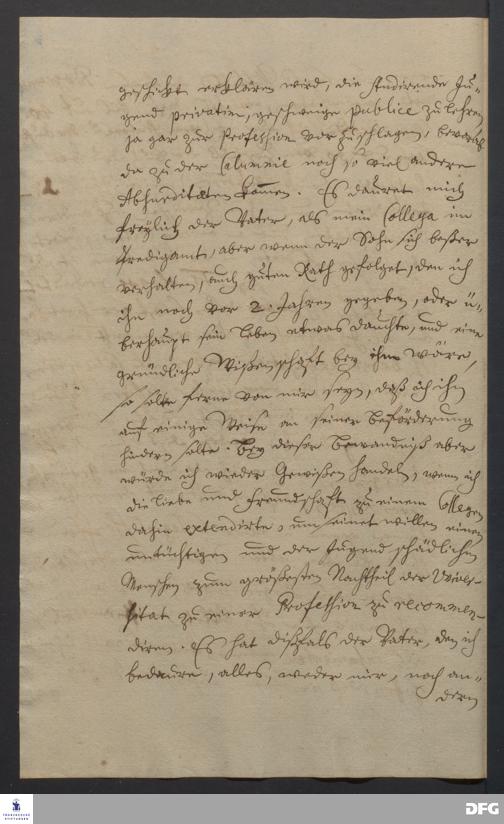 geschickt erklären wird, die studirende Ju-
gend privatim, geschweige publice zu lehren,
ja gar zur Profession vorzuschlagen, bevorab
da zu der Calumnie noch so viel andere
Absurditäten kommen. Es dauret mich
freylich der Vater, als mein Collega im
Predigamt, aber wenn der Sohn sich beßer
verhalten, auch guten Rath gefolget, den ich
ihm noch vor 2. Jahren gegeben, oder ü-
berhaupt sein Leben etwas dauchte, und eine
gründliche Wißenschaft bey ihm wäre,
so solte ferne von mir seyn, daß ich ihn
auf einige Weise an seiner Beförderung
hindern solte. Bey dieser Bewandniß aber
würde ich wieder Gewißen handeln, wenn ich
die Liebe und Freundschafft zu einem Collegen
dahin extendirte, um seinet willen einen
untüchtigen und der Jugend schädlichen
Menschen zum größesten Nachtheil der Univer-
sität zu einer Profession zu recommen-
diren. Es hat dißfals der Vater, den ich
bedaure, alles, weder mir, noch an-
dern
FRANCKESCHE
STIFTUNGEN
DFG